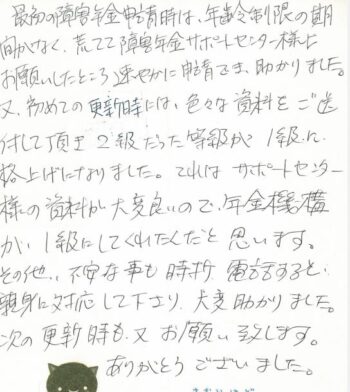 最初の障害年金申請時は、年齢制限の期
間がなく、荒てて障害年金サポートセンター様に
お願いしたところ速やかに申請でき、助かりました。
又、初めての更新時には、色々な資料をご送
付して頂き2級だった等級が1級に
格上げになりました。これはサポートセンター
様の資料が大変良いので、年金機構
が、1級にしてくれたんだと思います。
その他、不安な事も時折電話すると、
親身に対応して下さり、大変助かりました。
次の更新時も又お願い致します。
ありがとうございました。